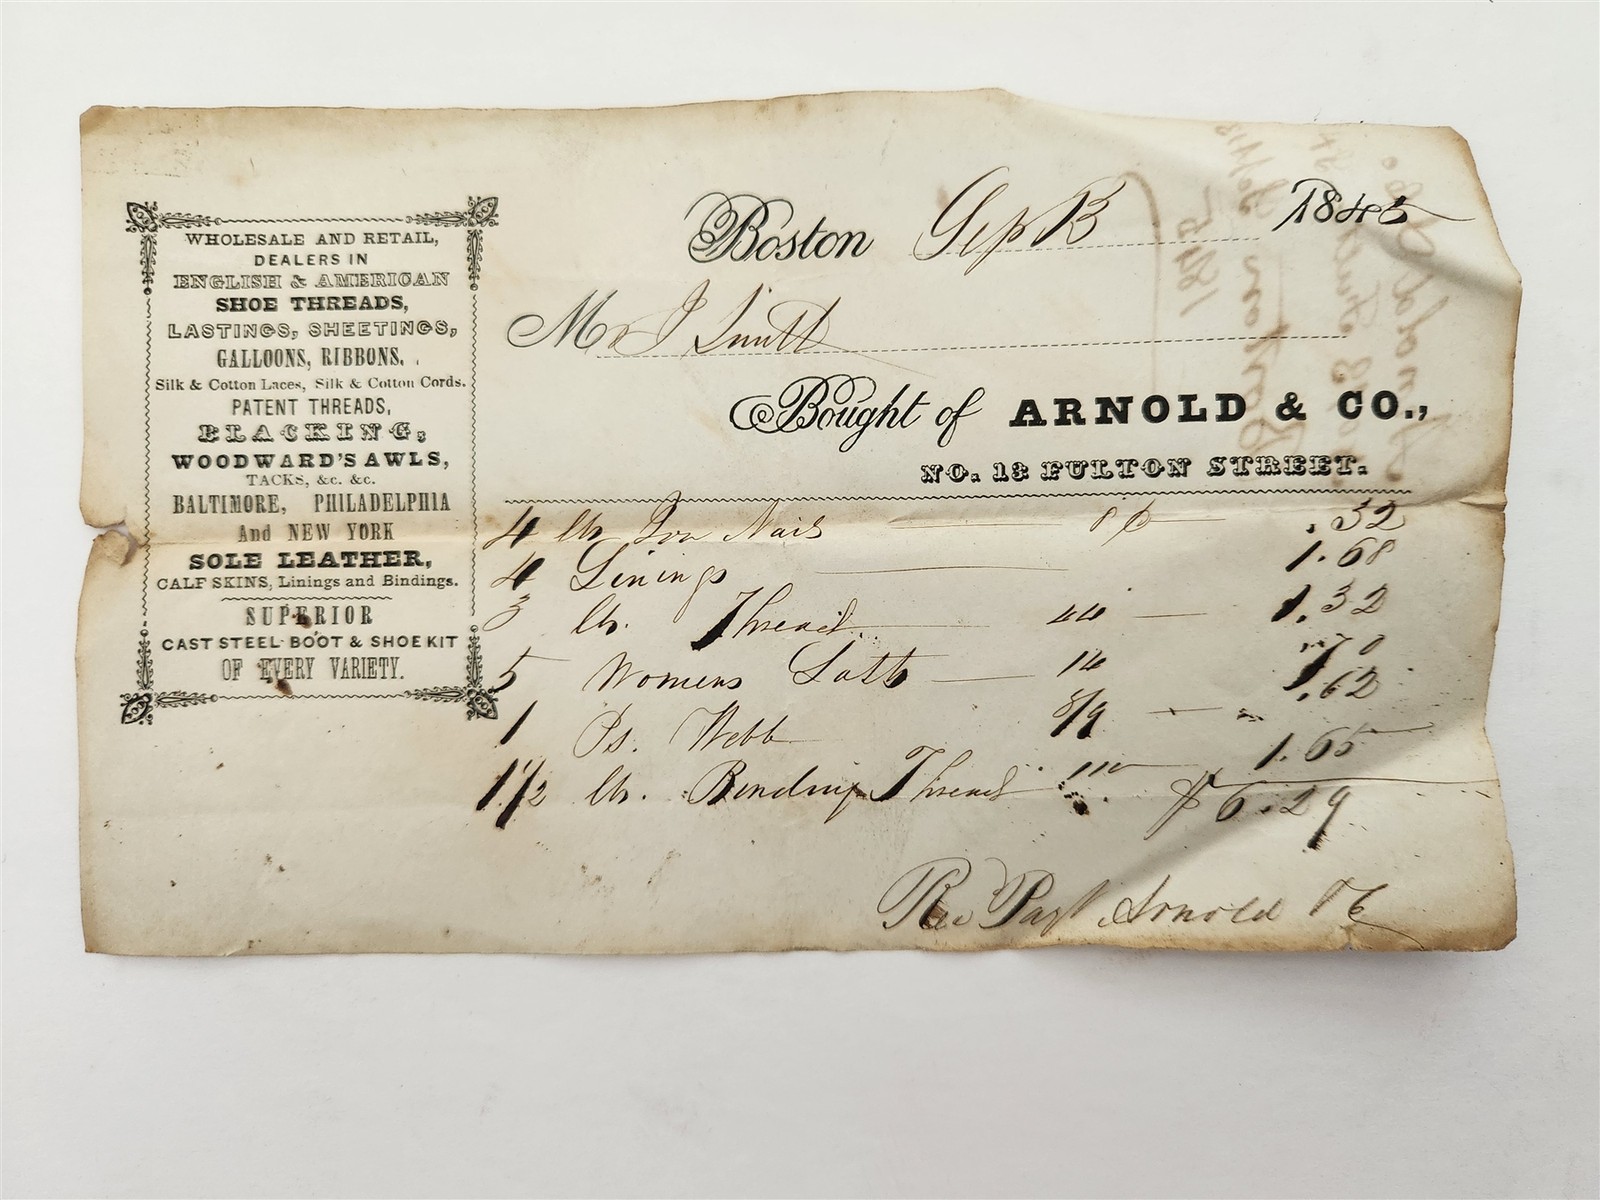 WHOLESALE AND RETAIL,
DEALERS IN
ENGLISH & AMERICAN
SHOE THREADS,
LASTINGS, SHEETINGS,
GALLOONS, RIBBONS,
Silk & Cotton Laces, Silk & Cotton Cords.
PATENT THREADS,
BLACKING,
WOODWARD'S AWLS,
TACKS, &c. &c.
BALTIMORE, PHILADELPHIA
And NEW YORK
SOLE LEATHER,
CALF SKINS, Linings and Bindings.
SUPERIOR
CAST STEEL BOOT & SHOE KIT
OF EVERY VARIETY.
Boston Sep 1845
Mr J Smith
Bought of ARNOLD & CO.,
NO. 13 FULTON STREET.
4 lb Iron Nails 8c .32
4 Linings 1.68
3 lb. Thread 44 1.32
5 Womens Lasts 14 .70
1 Ps. Webb .62
1 1/2 lb. Binding Thread 110 1.65
$6.29
Rec Payt Arnold & Co